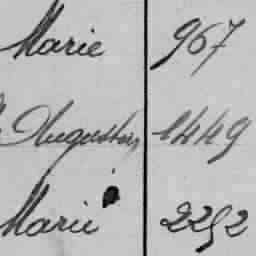 Marie 967
Augustin 1449
Marie 2252